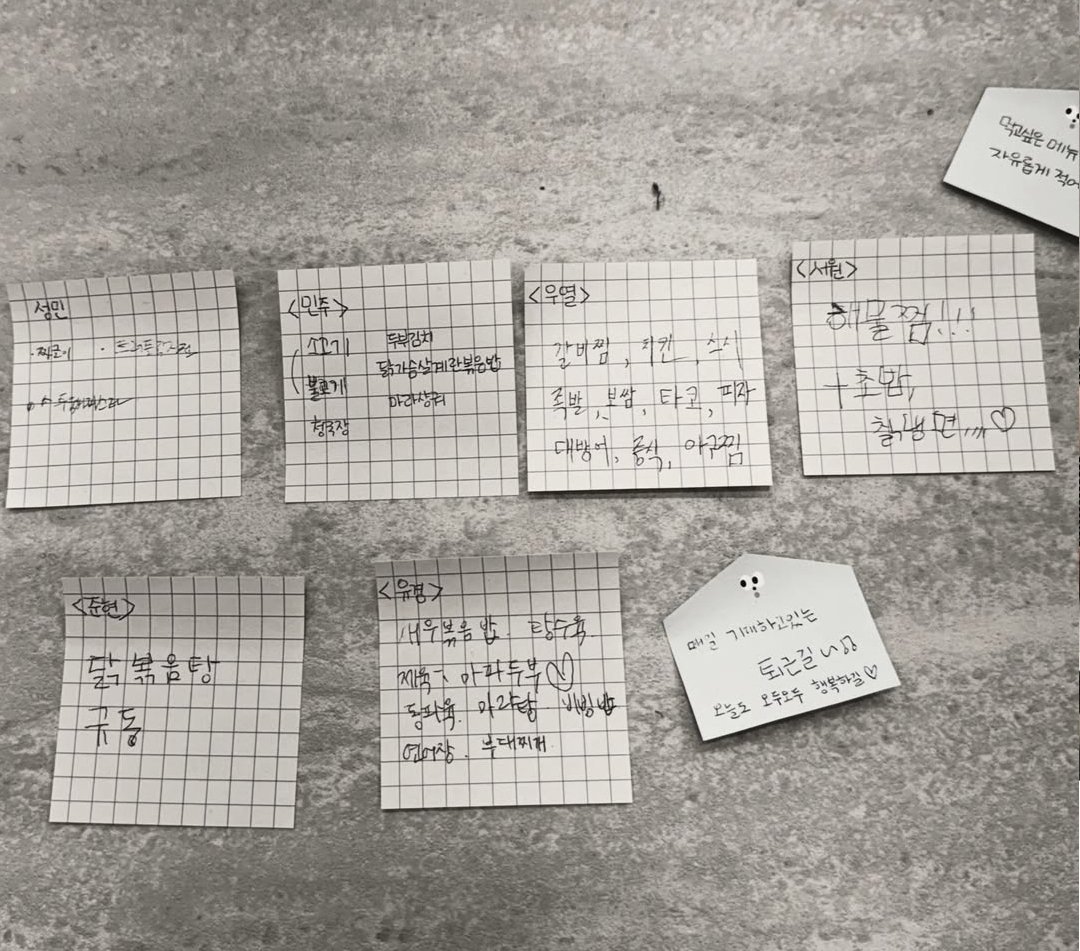 먹고싶은 메뉴
자유롭게 적어
성민
<민주>
소고기 두부김치
불고기 닭가슴살계란볶음밥
청국장 마라샹궈
<우열>
갈비찜, 치킨,
족발, 보쌈, 타코, 피자
대방어, 중식, 아구찜
<서원>
해물찜!!!
+ 초밥,
칡냉면,,,♡
<준현>
닭볶음탕
규동
<유경>
새우볶음밥. 탕수육.
제육. 마파두부♡
동파육. 마라탕. 비빔밥
연어장. 부대찌개.
매일 기대하고있는
퇴근길
오늘도 모두모두 행복하길♡